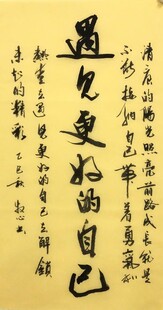 清晨的阳光照亮前路成长就是
不断接纳自己带着勇气和
遇见更好的自己
热爱去遇见更好的自己去解锁
未知的精彩
乙巳秋